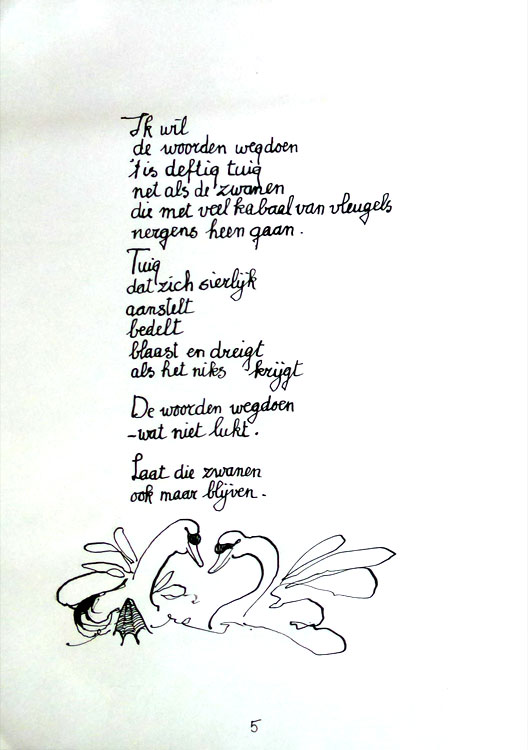 Ik wil
de woorden wegdoen
't is deftig tuig
net als de zwanen
die met veel kabaal van vleugels
nergens heen gaan.
Tuig
dat zich sierlijk
aanstelt
bedelt
blaast en dreigt
als het niks krijgt
De woorden wegdoen
-wat niet lukt.
Laat die zwanen
ook maar blijven.
5